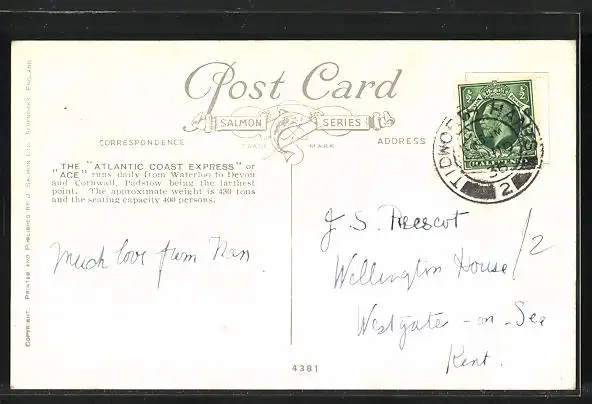 Post Card
SALMON SERIES
TRADE MARK
CORRESPONDENCE
ADDRESS
"THE "ATLANTIC COAST EXPRESS" or
"ACE" runs daily from Waterloo to Devon
and Cornwall, Padstow being the farthest
point. The approximate weight is 430 tons
and the seating capacity 400 persons.
Much love from Nan
J. S. Prescot
Wellington House /2
Westgate-on-Sea
Kent.
4381
COPYRIGHT. PRINTED AND PUBLISHED BY J. SALMON LTD. SEVENOAKS. ENGLAND
TIDWORTH HANTS
2
HALFPENNY